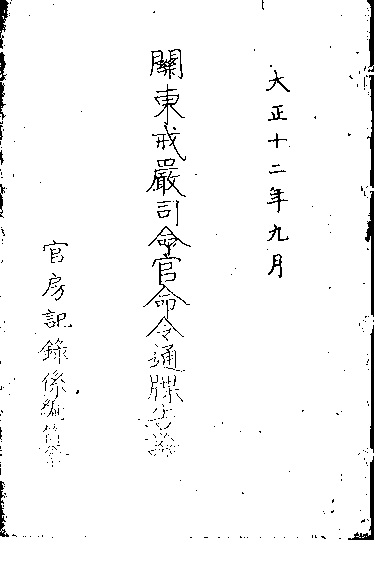 大正十二年九月
關東戒嚴司令官命令通牒告諭
官房記錄係編纂